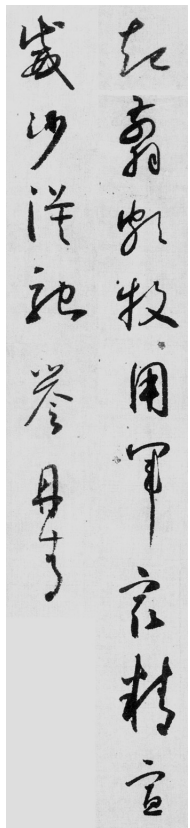 起翦頗牧用軍最精宣
威沙漠馳譽丹青